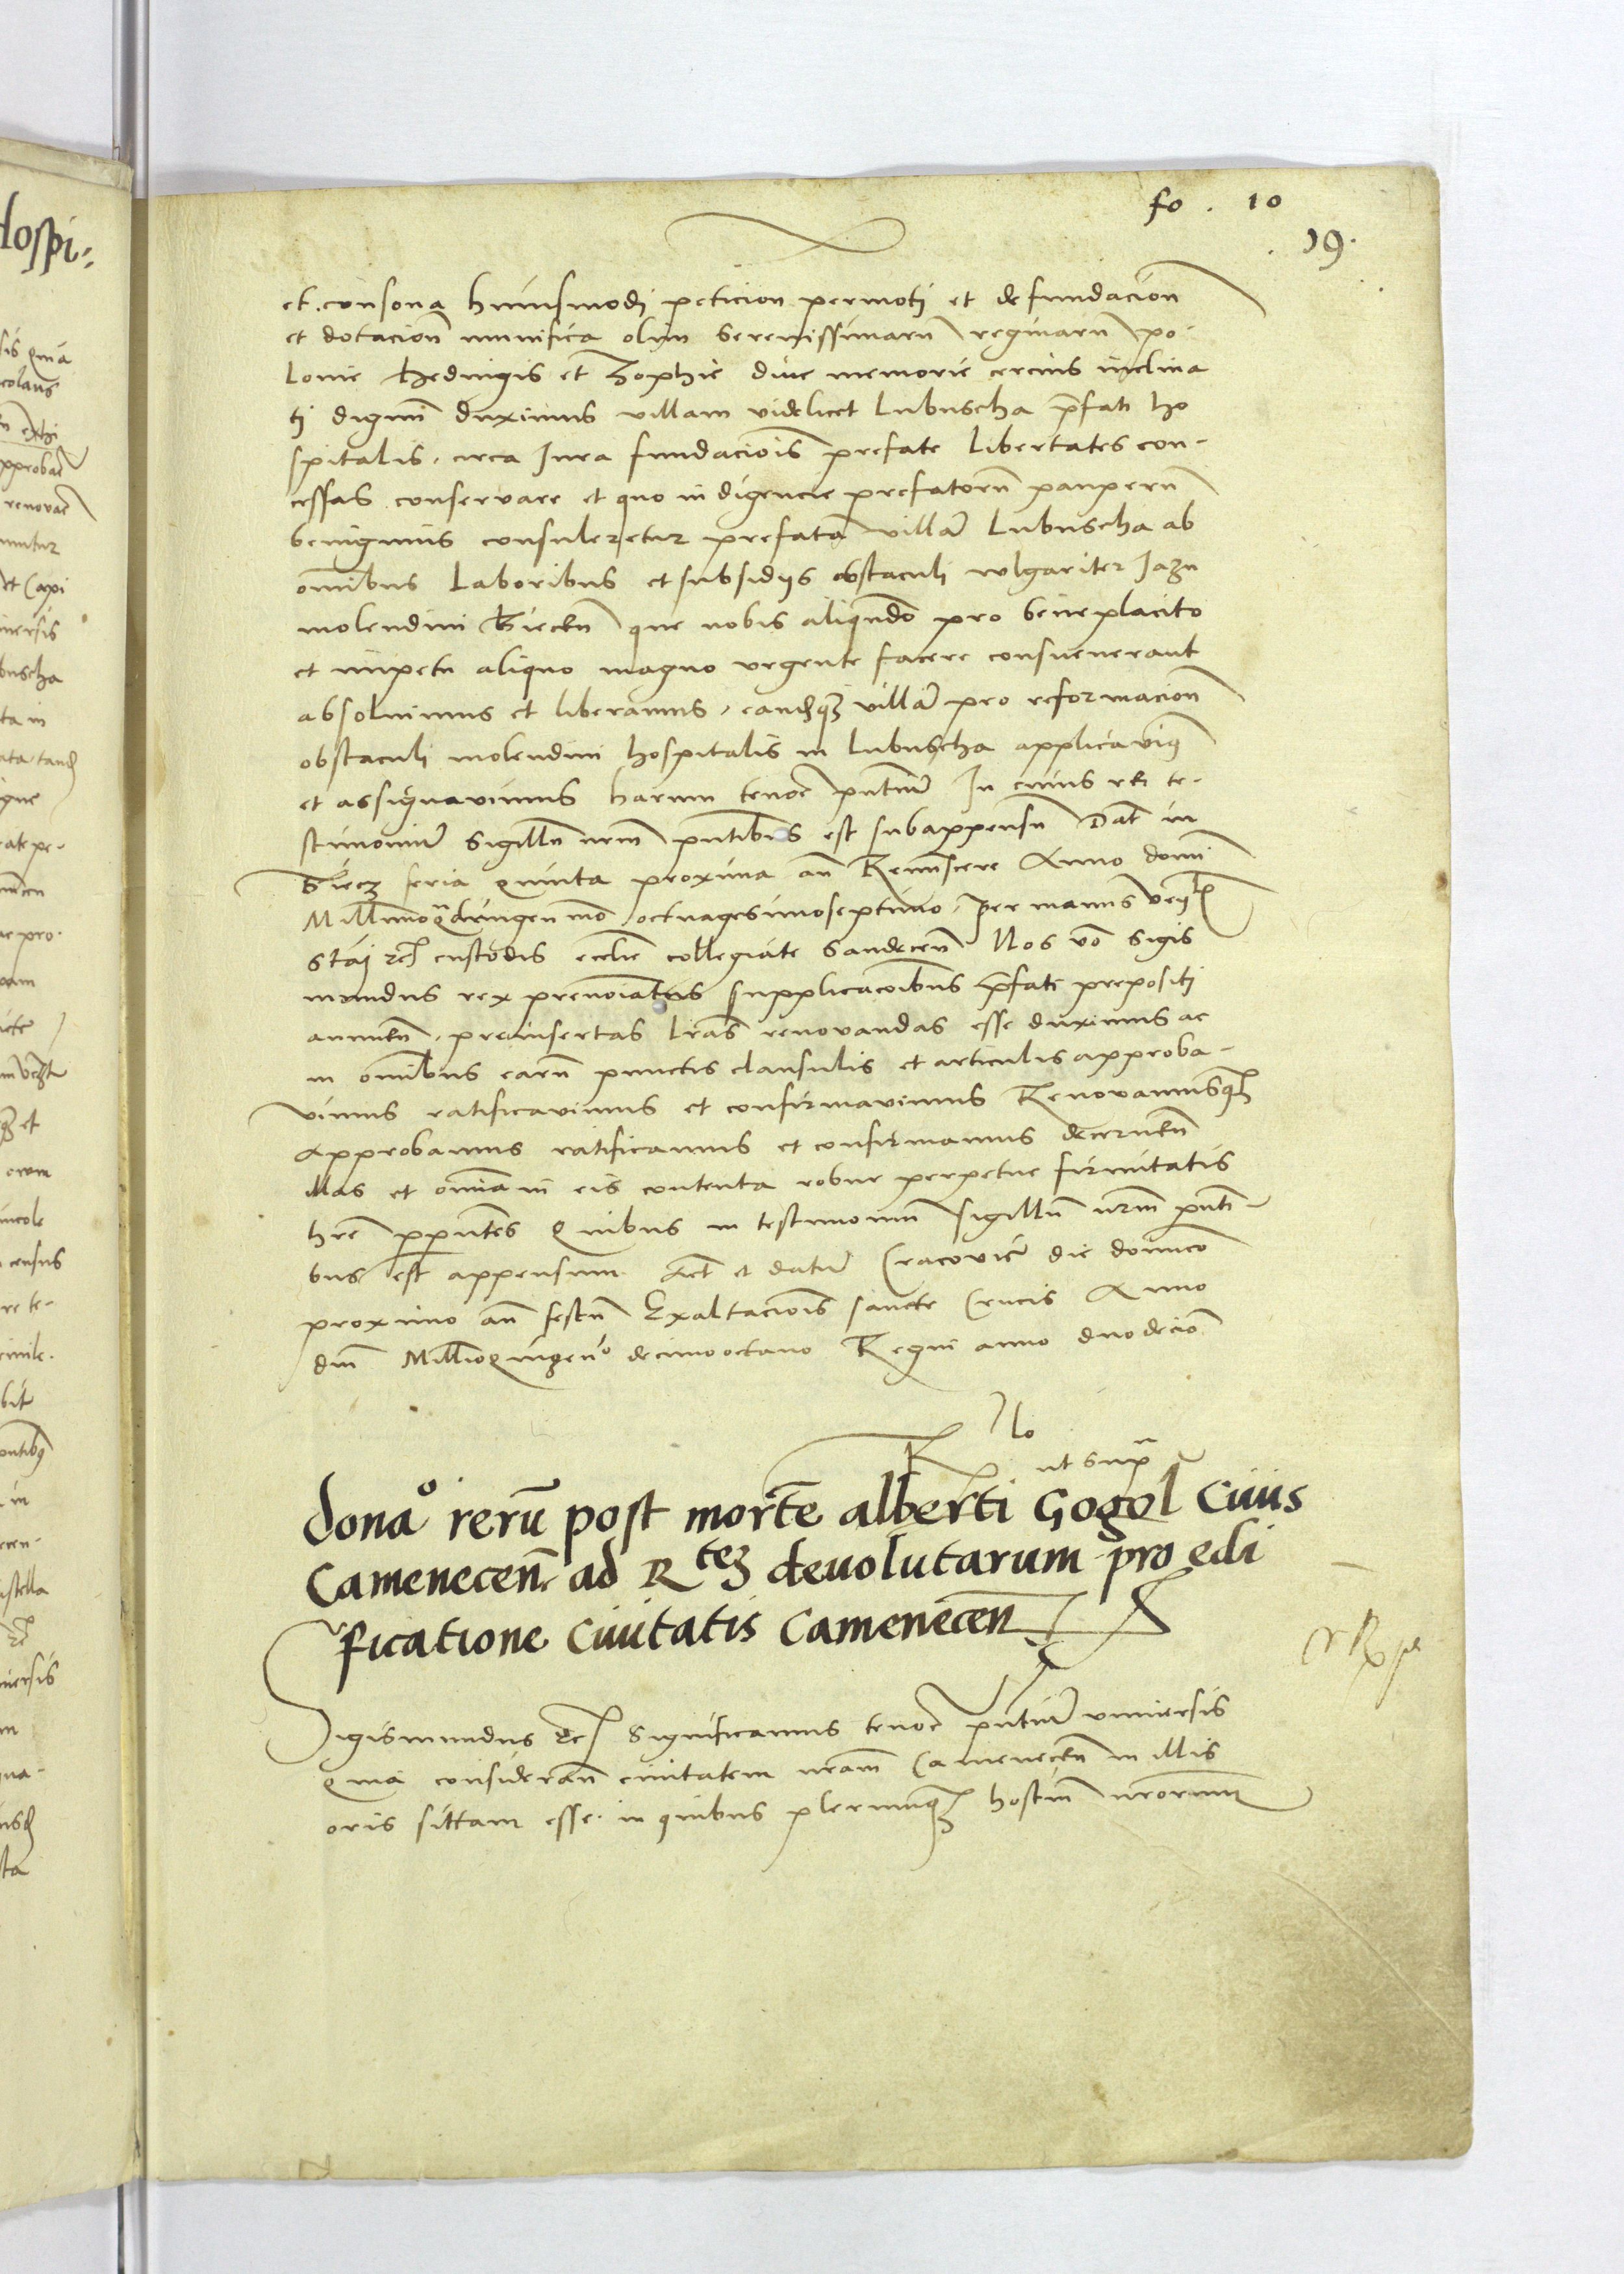 fo . 10
19.
et consona huiusmodi peticion permoti et de fundacion
et dotacion munifica olim serenissimaru reginaru po-
lonie Hedwigis et Zophie dive memorie cercius inclina
ti dignu duximus villam videlicet Lubuscha pfati ho
spitalis circa Iura fundaciois prefate libertates con-
cessas conservare et quo indigencie prefatoru pauperu
benignius consuleretur prefata villa Lubuscha ab
omibus laboribus et subsidijs obstaculi wlgariter Jazu
molendini Biecen que nobis aliqndo pro beneplacito
et impetu aliquo magno urgente facere consueverant
absolvimus et liberamus, eandqz villa pro reformacion
obstaculi molendini hospitalis in Lubuscha applicavim9
et assignavimus harum tenore pntium In cuius rei te-
stimonium sigillu nrm pntibus est subappensu Dat in
Biecz feria quinta proxima an Reminiscere Anno domi
Millimoqdringenmo octuagesimoseptimo, per manus
custodis ecclie collegiate Sandecen Nos vo Sigis
mundus rex prenoiatus supplicacoibus pfati prepositi
annuen, preinsertas lras renovandas esse duximus ac
in omibus earu punctis clausulis et articulis approba-
vimus ratificavimus et confirmavimus Renovamusqz
Approbamus ratificamus et confirmamus decernen
illas et omia in eis contenta robur perpetue firmitatis
hre ppntes Quibus in testimoniu sigillu nrm pnti-
bus est appensum Act et datu Cracovie die domico
proximo an festu Exaltaciois sancte Crucis Anno
dni Millioquingeno decimooctavo Regni anno duodecio
R
ut supra
dona⁰ rerū post mortē alberti Gogol civis
Camenecen ad R tez devolutarum pro edi
ficatione civitatis Camenecen
Sigismundus etc Significamus tenore pntium universis
Quia consideran civitatem nram Camenecen in illis
oris sittam esse in quibus plerumqz hostiu nrorum